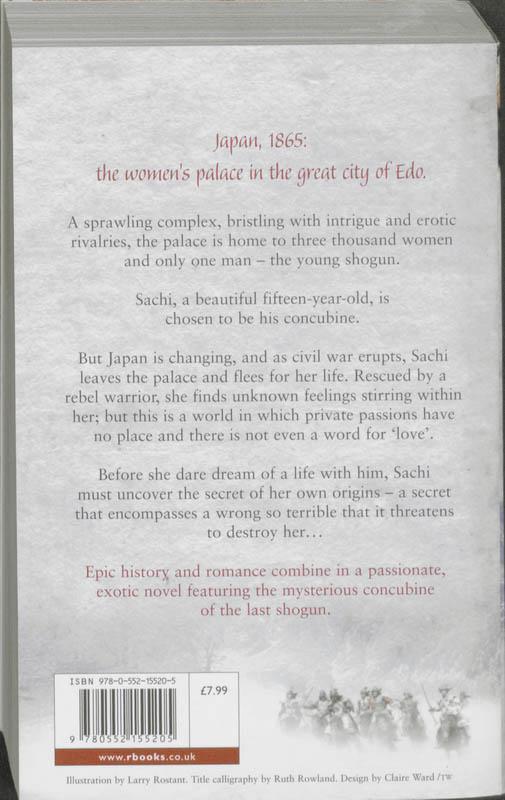 Japan, 1865:
the women's palace in the great city of Edo.
A sprawling complex, bristling with intrigue and erotic
rivalries, the palace is home to three thousand women
and only one man – the young shogun.
Sachi, a beautiful fifteen-year-old, is
chosen to be his concubine.
But Japan is changing, and as civil war erupts, Sachi
leaves the palace and flees for her life. Rescued by a
rebel warrior, she finds unknown feelings stirring within
her; but this is a world in which private passions have
no place and there is not even a word for ‘love’.
Before she dare dream of a life with him, Sachi
must uncover the secret of her own origins – a secret
that encompasses a wrong so terrible that it threatens
to destroy her…
Epic history and romance combine in a passionate,
exotic novel featuring the mysterious concubine
of the last shogun.
ISBN 978-0-552-15520-5
£7.99
9 780552 155205
www.rbooks.co.uk
Illustration by Larry Rostant. Title calligraphy by Ruth Rowland. Design by Claire Ward /TW